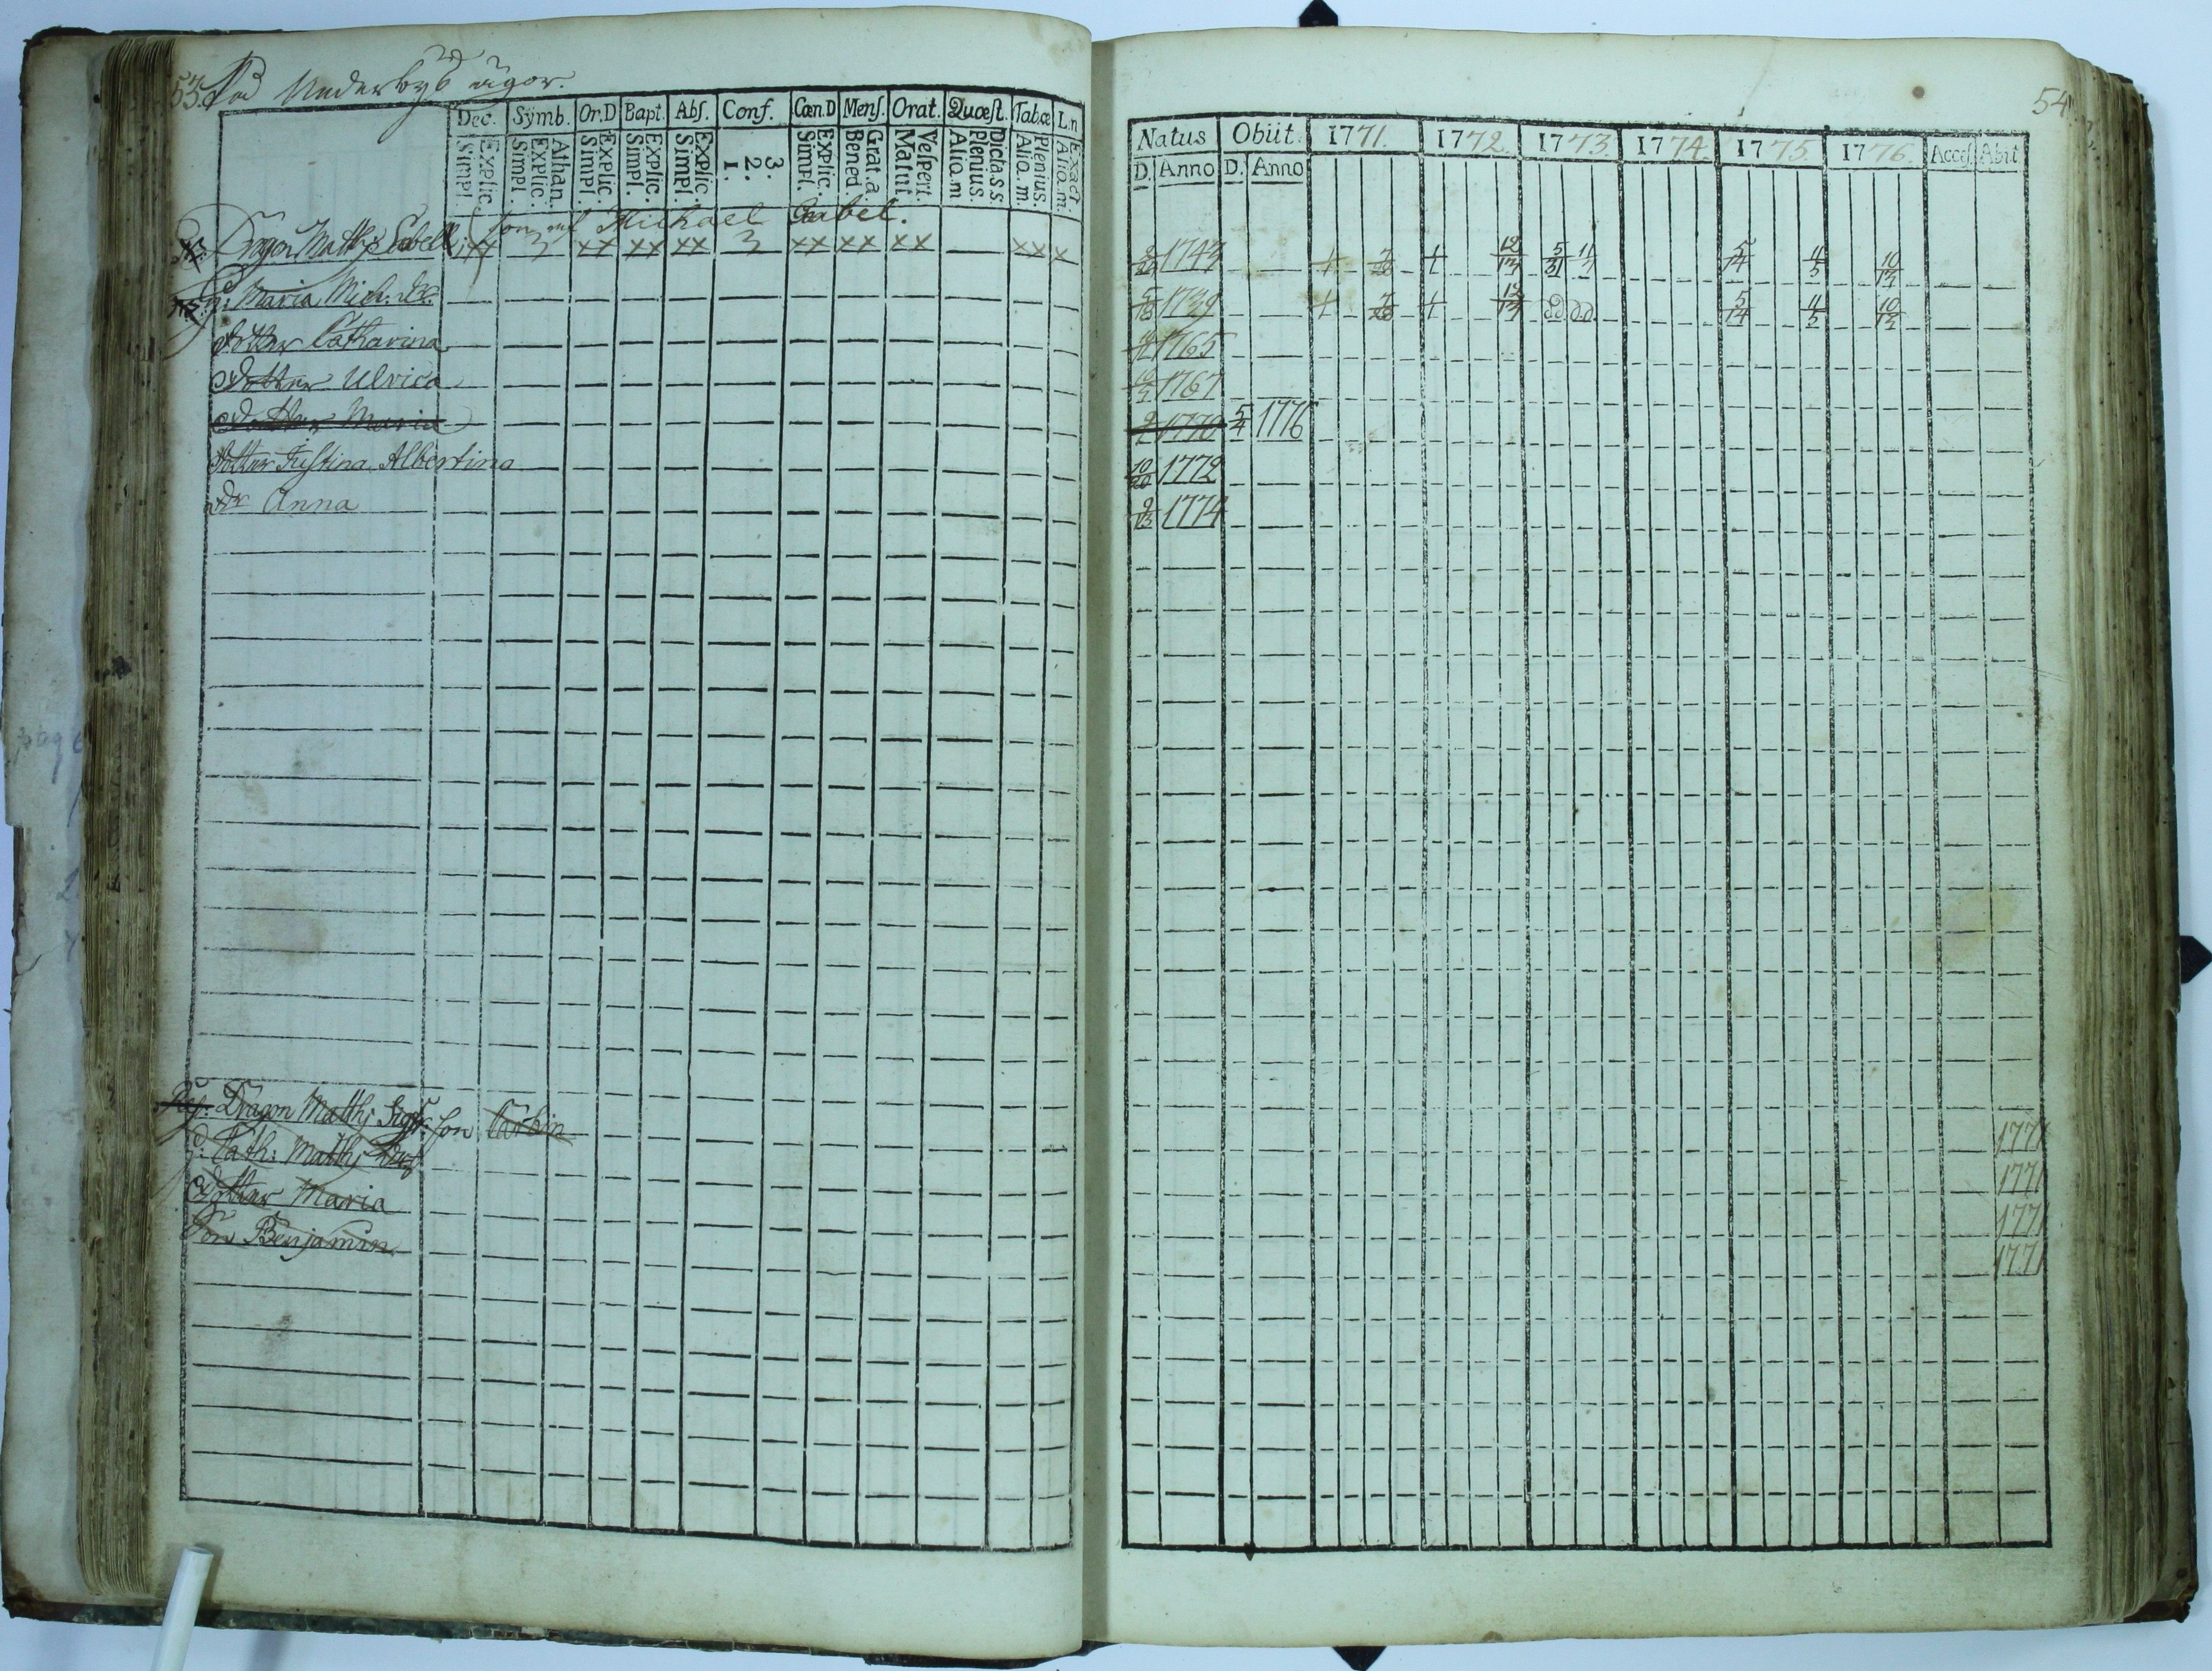 53. På Underbys ägor.
Dec. Symb. Or.D Bapt. Abs. Conf. Cœn.D Mens. Orat. Quæst. Tab.œ L.n
Simpl. Explic. Simpl. Explic. Athan. Simpl. Explic. Simpl. Explic. Simpl. Explic. 1. 2. 3. Simpl. Explic. Bened. Grat.a Matut. Vespert. Alio.m Plenius. Dict.a s.s. Alio.m. Plenius. Alio.m. Exact
son af Michael Cabel.
Dragon Matths Cabell xx 3 xx xx xx 3 xx xx xx xx x
h: Maria Mich. dr.
dotter Catharina
dotter Ulrica
dotter Maria
dotter Justina Albertina
dr Anna
Dragon Matths Sigf: son Carbin
h: Cath: Matths
dotter Maria
Son Benjamin
54.
Natus Obiit. 1771. 1772. 1773. 1774. 1775. 1776. Acces. Abit
D. Anno D. Anno
1743 5/31 11/7 5/14 11/5 10/13
5/18 1739 5/14 11/5 10/13
1765
1767
1770 5/4 1776
10/20 1772
9/13 1774
1771
1771
1771
1771